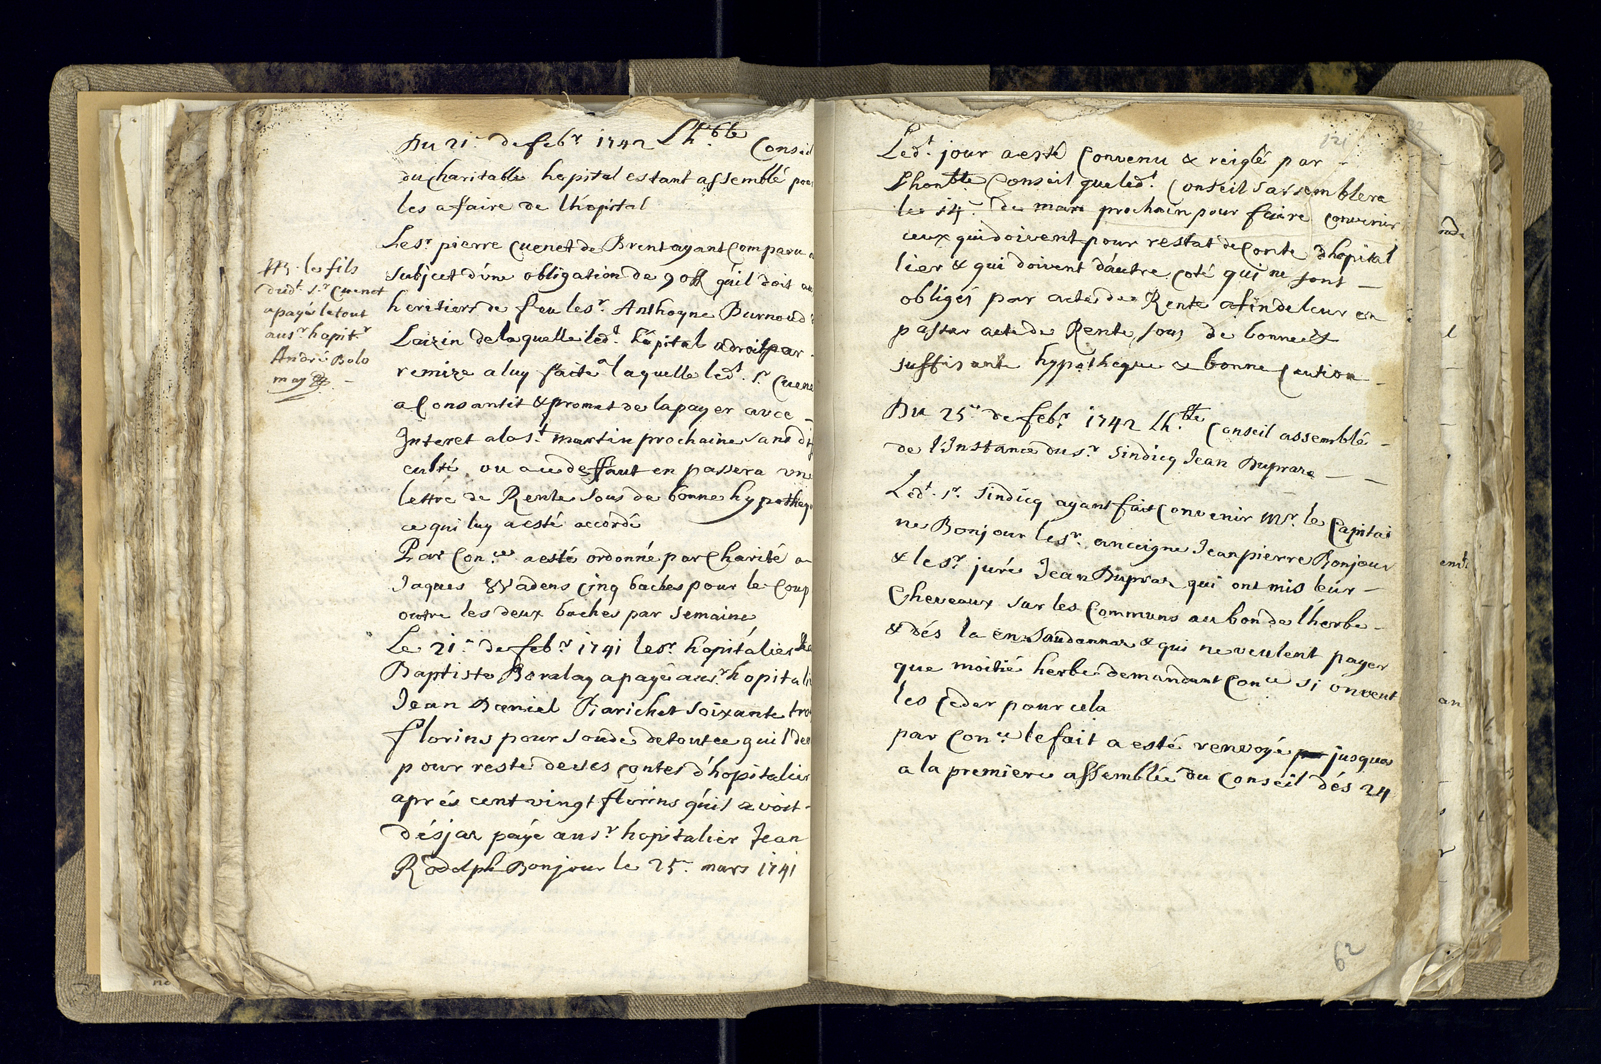 Du 21.e de febr. 1742 Lh.ble Conseil
du charitable hopital estant assemblé pour
les afaire de lhopital
Le sr. pierre Cuenet de Brent ayant Comparu a
subject d'une obligation de 90 ff qu'il doit au
heritiers de feu le sr. Anthoyne Burnoud
de laquelle led.t hôpital a droit par
remize a luy faite laquelle led.t Sr. Cuene
a Consantit & promet de la payer avec
Interet a la s.t martin prochaine sans dif
culté ou au deffaut en passera une
lettre de Rente sous de bonne hypotheq
ce qui luy a esté accordé
Par Con.ce a esté ordonné par Charité a
Jaques Wadens cinq baches pour le coup
outre les deux baches par semaine
Le 21.e de febr. 1741 le sr. hopitalier
Baptiste a payé au sr. hopitali
Jean Daniel soixante tro
florins pour soude de tout ce qu'il de
pour reste de ses contes d'hopitalier
aprés cent vingt florins qu'il avoit
désja payé au sr. hopitalier Jean
Rodolph Bonjour le 25.e mars 1741
les fils
dud.t Sr. Cuenet
a payé le tout
au sr. hopit.r
André Bolo
121
Led.t jour a esté Convenu & reiglé par
Lhonble Conseil que led.t Conseil s'assemblera
le 14.e de mars prochain pour faire convenir
ceux qui doivent pour restat de Conte dhopital
lier & qui doivent d'autre coté qui ne sont
obligés par acte de Rente afin de leur en
passer acte de Rente sous de bonne &
suffisante hypotheque & bonne Caution
Du 25.e de febr. 1742 Lh.ble Conseil assemblé
de l'Instance du sr. Sindicq Jean Dupraz
Led.t sr. Sindicq ayant fait Convenir Mr. le Capitai
ne Bonjour le sr. anceigne Jean pierre Bonjour
& le sr. juré Jean Dupraz qui ont mis leur
Cheveaux sur les Communs au bon de l'herbe
& dés la en Saudannaz & qui ne veulent payer
que moitié herbe demandant Con.ce si on veut
les Ceder pour cela
par Con.ce le fait a esté renvoyé jusques
a la premiere assemblée du Conseil dés 24
62